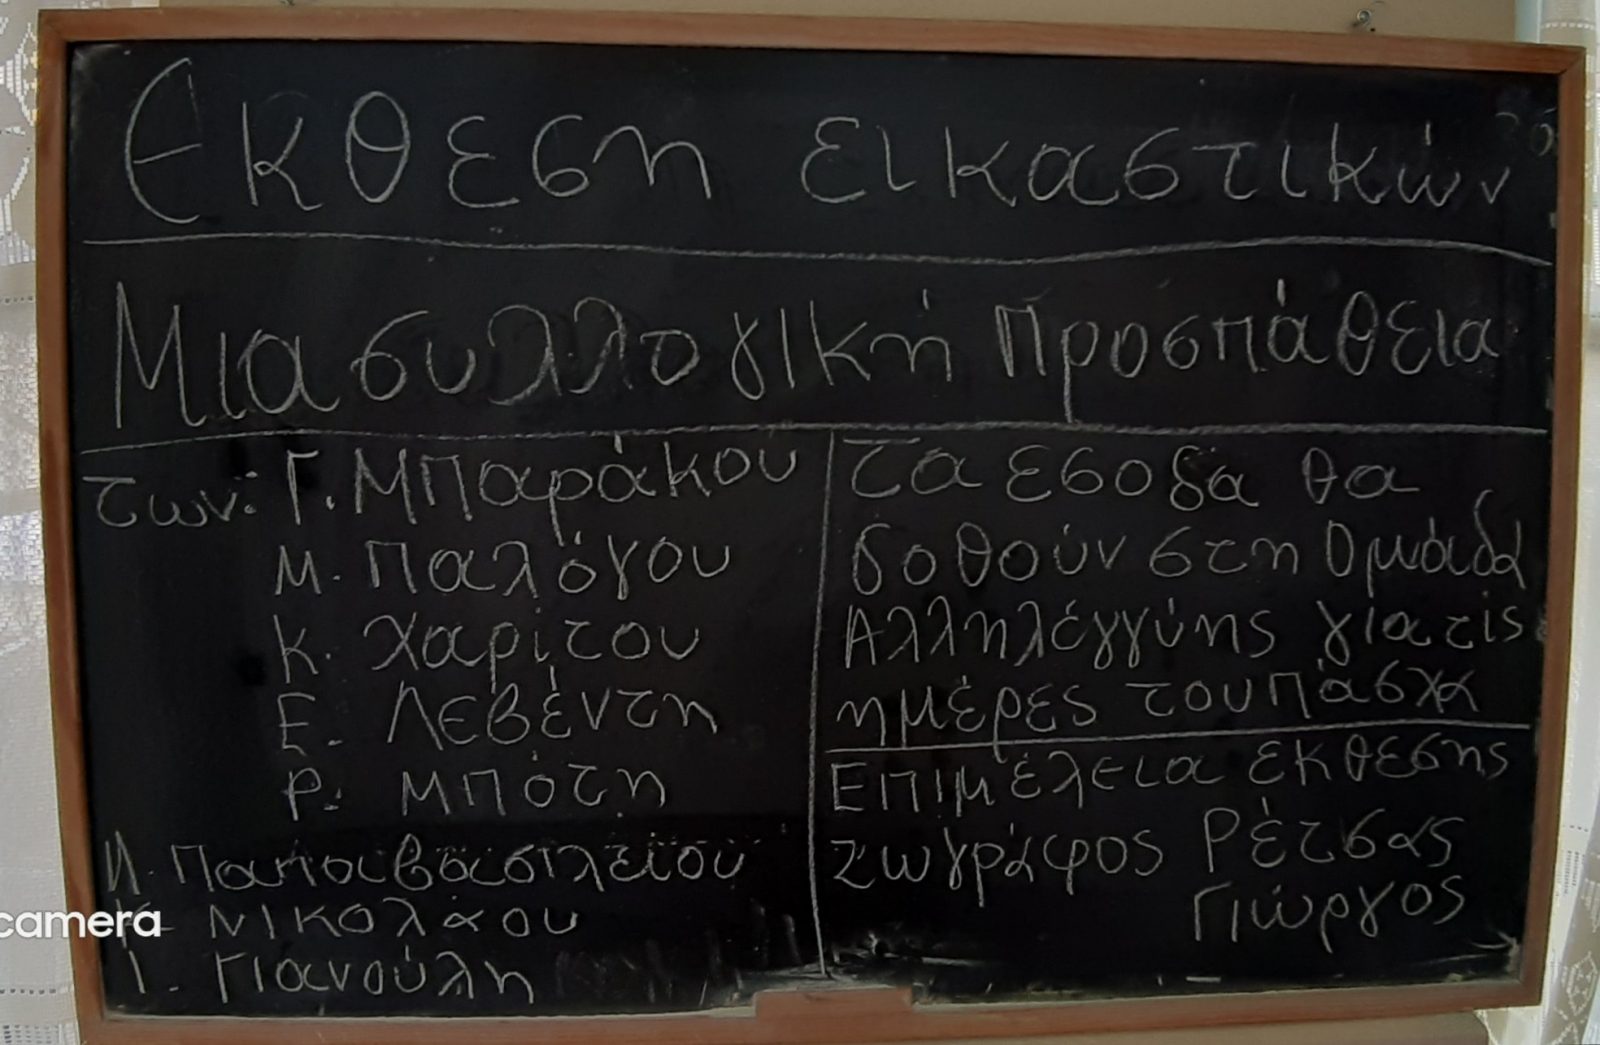 Εκθεση εικαστικών
Μια συλλογική Προσπάθεια
των: Γ. Μπαράκου
Μ. Παλόγου
Κ. Χαρίτου
Ε. Λεβέντη
Ρ. Μπότη
Παπαβασιλείου
Κ. Νικολάου
Ι. Γιανούλη
Τα έσοδα θα
δοθούν στη Ομάδα
Αλληλέγγύης για τίς
ημέρες του Πάσχα
Επιμέλεια εκθεσης
Ζωγράφος Ρέτσας
Γιώργος
camera